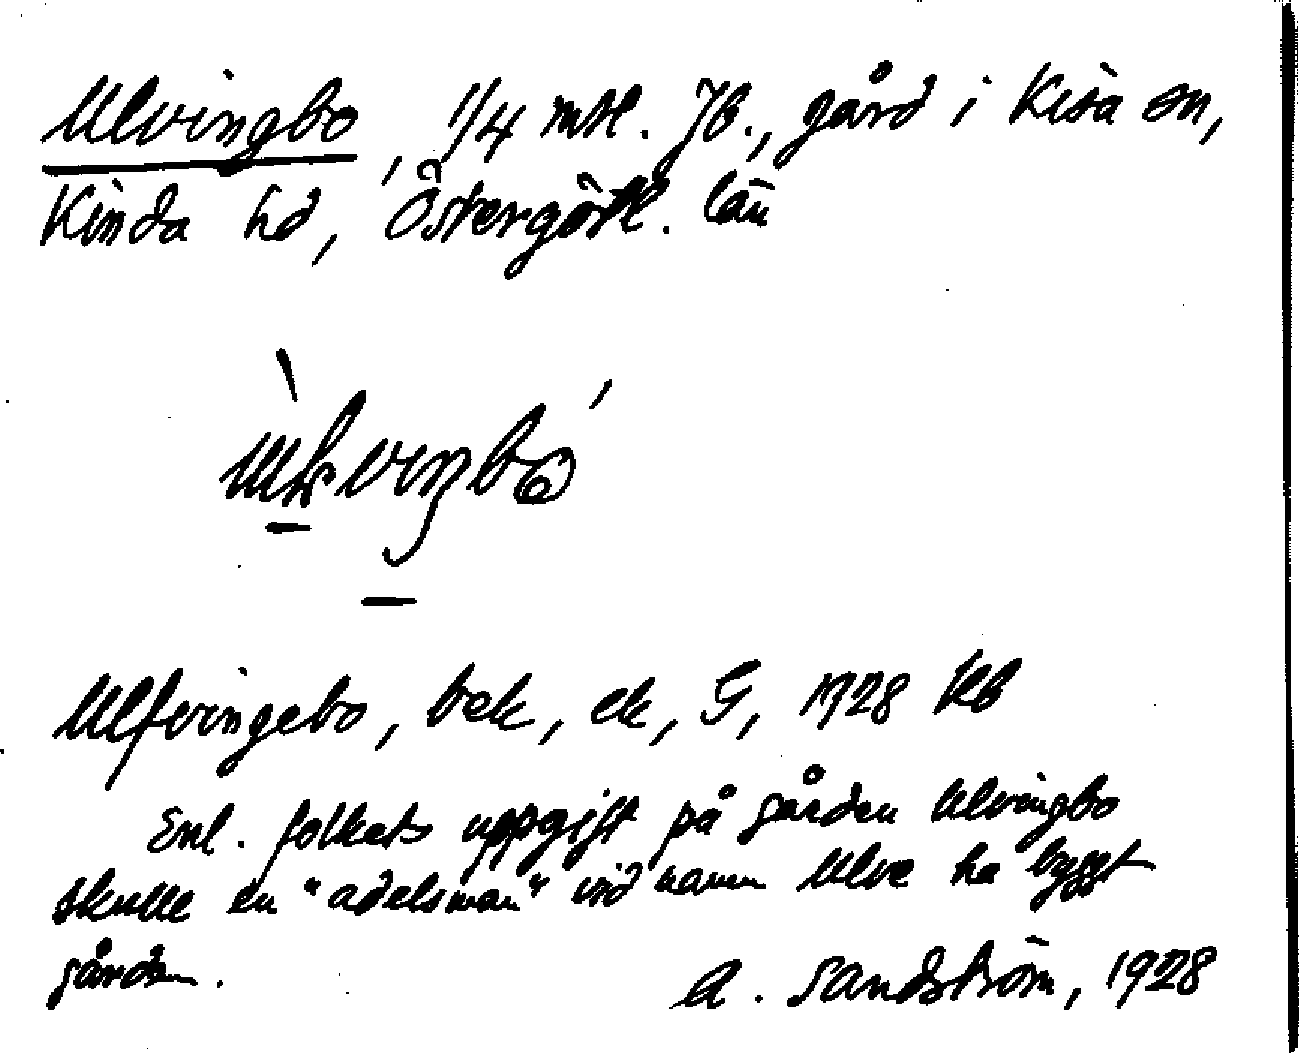 Ulvingbo, 1/4 mtl. Jb., gård i Kisa sn,
Kinda hd, Östergötl. län
Ulfvingebo, bek, ek, G, 1728 Kb
Enl. folkets uppgift på gården Ulvingbo
skulle en "adelsman" vid namn Ulve ha byggt
gården.
A. Sandström, 1928